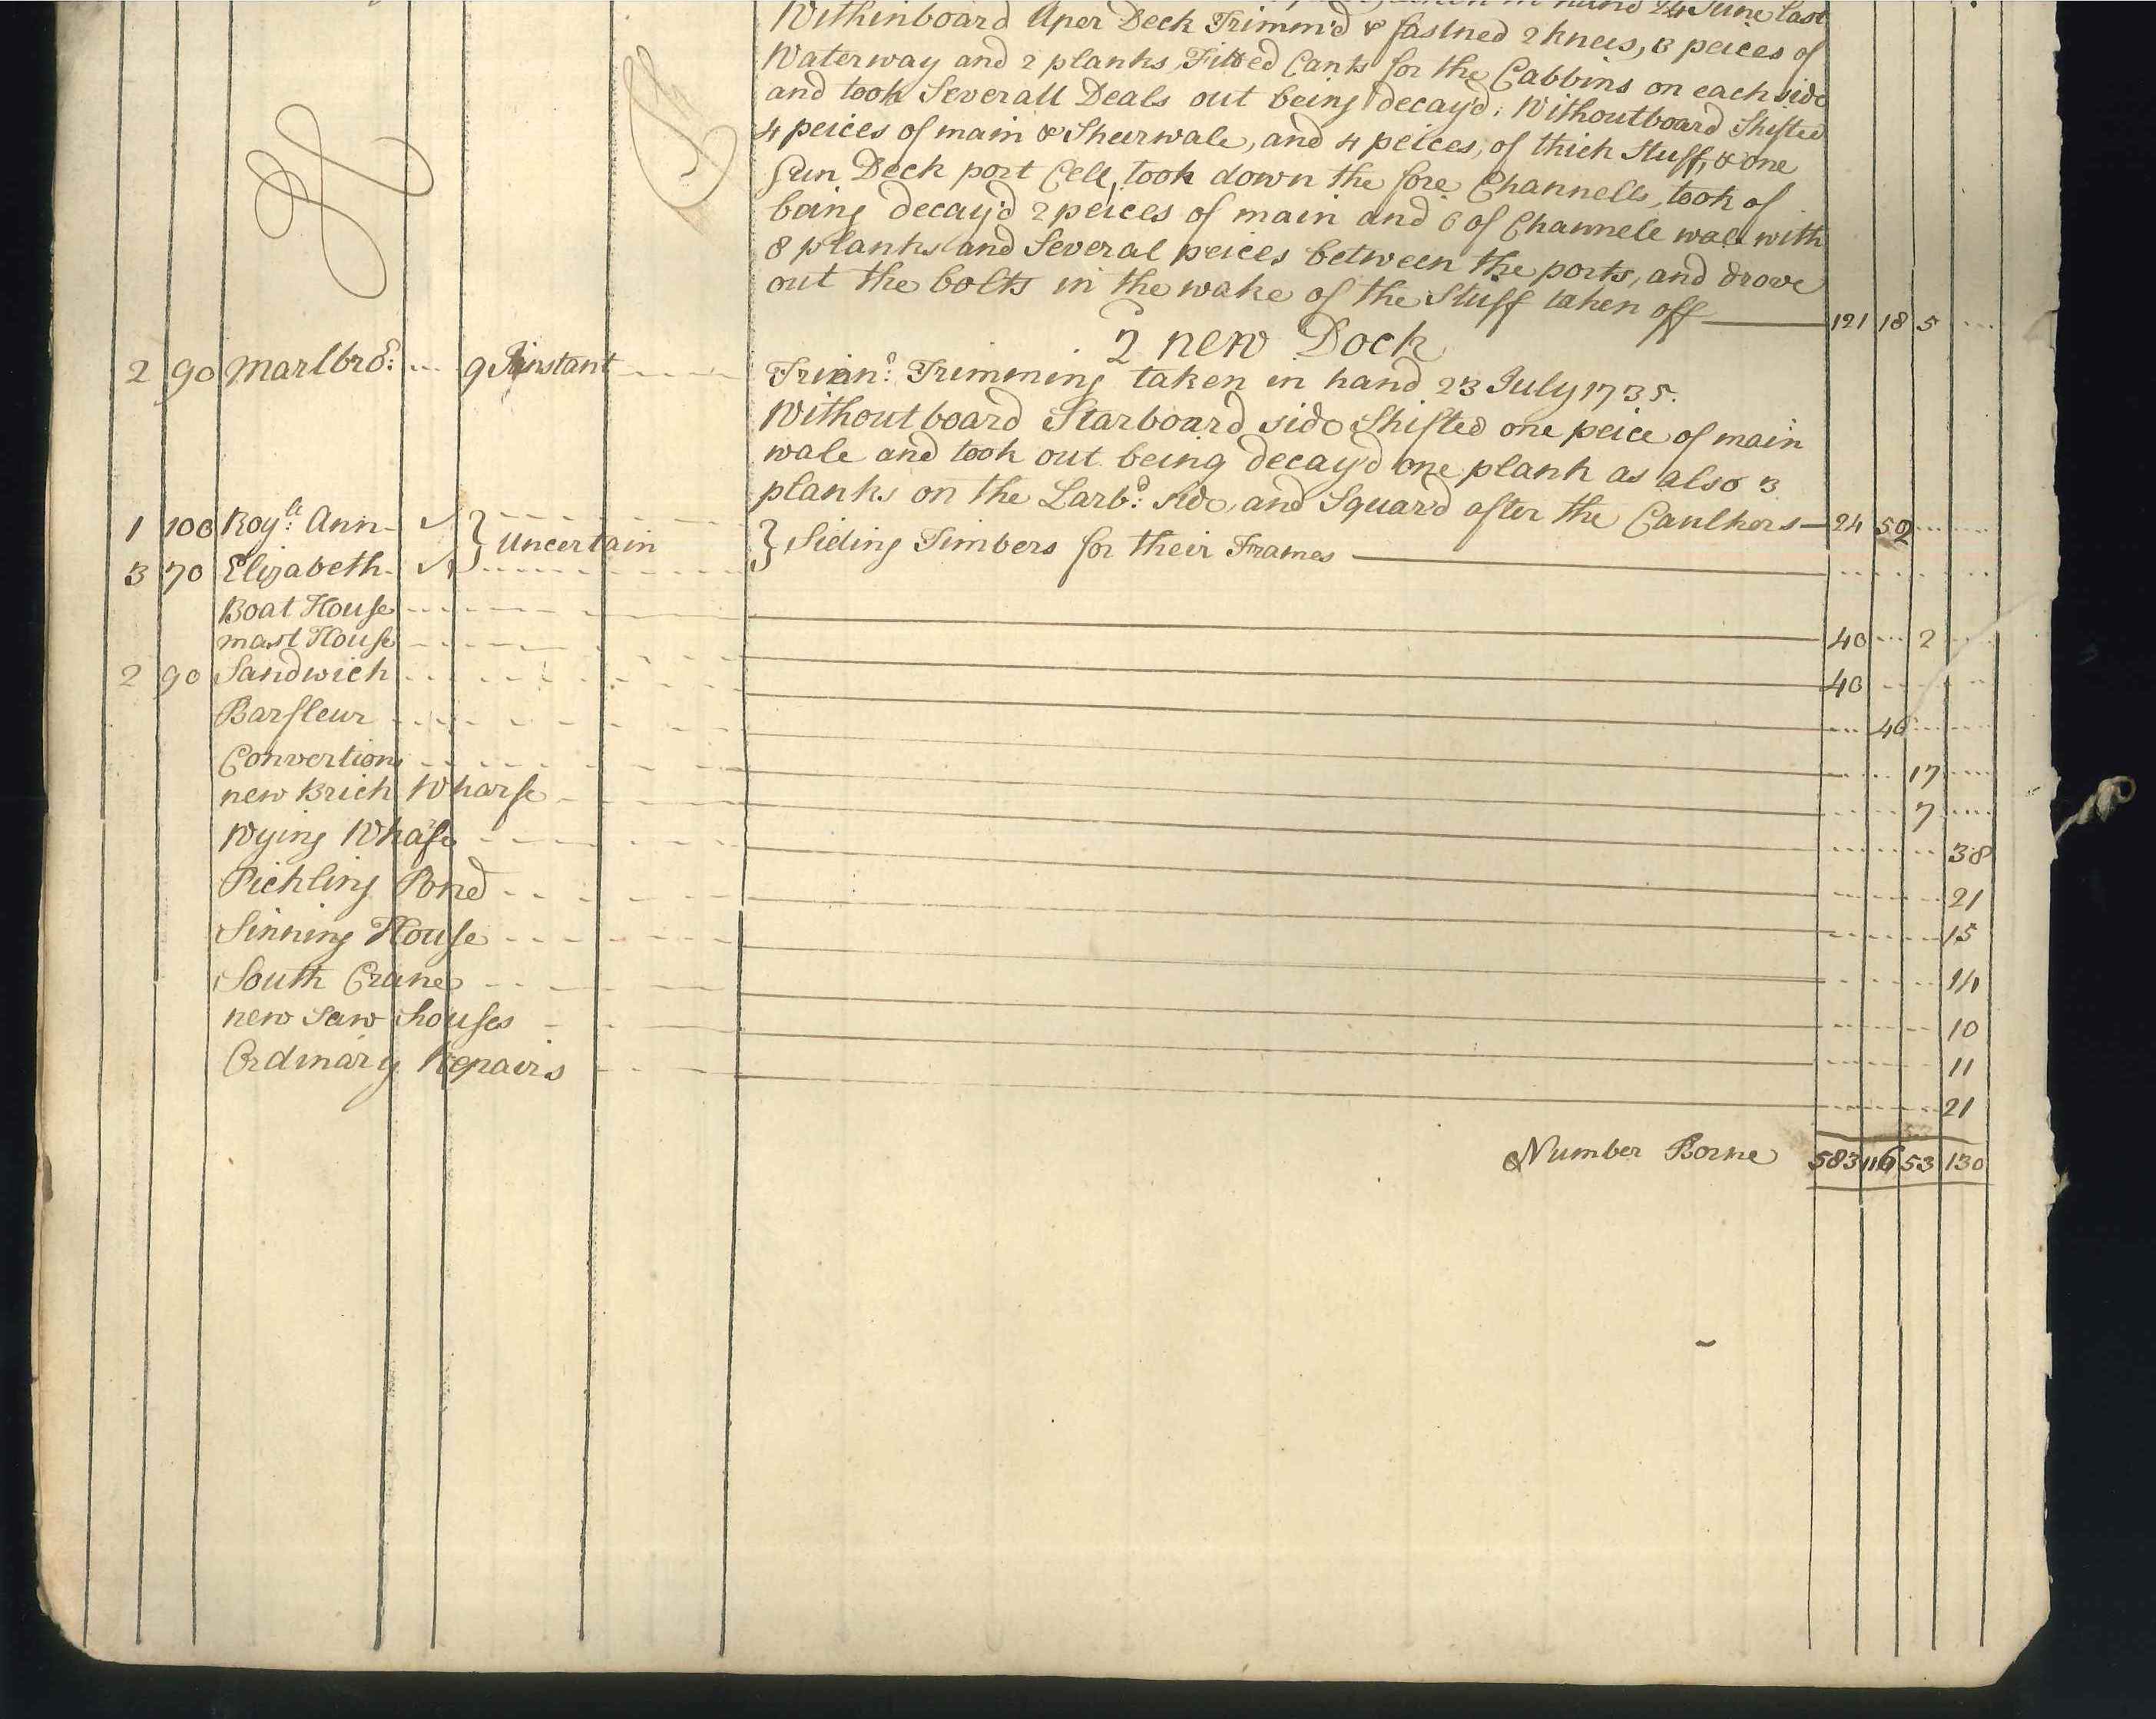 taken in hand 24 June last
Withinboard Uper Deck Trimm'd & fastned 2 knees, 3 peices of
Waterway and 2 planks, Fitted Cants for the Cabbins on each side
and took Severall Deals out being decay'd. Withoutboard Shifted
4 peices of main & Sheerwale, and 4 peices, of thick Stuff, & one
Gun Deck port Cell, took down the fore Channells, took of
being decay'd 2 peices of main and 6 of Channell wale with
8 planks and Several peices between the ports, and drove
out the bolts in the wake of the Stuff taken off 121 18 5
2 new Dock
2 90 Marlbro: 9 Instant Trien: Trimming taken in hand 23 July 1735.
Withoutboard Starboard side Shifted one peice of main
wale and took out being decay'd one plank as also 3
planks on the Larb:d side, and Squar'd after the Caulkers 24 52
1 100 Roy:ll Ann } Uncertain } Siding Timbers for their Frames
3 70 Elizabeth
Boat House 40 2
mast House 40
2 90 Sandwich 46
Barfleur 17
Convertion 7
new Brick Wharfe 38
Wying Whafe 21
Pickling Pond 15
Sinning House 14
South Crane 10
new Saw houses 11
Ordinary Repairs 21
Number Borne 583 116 53 130